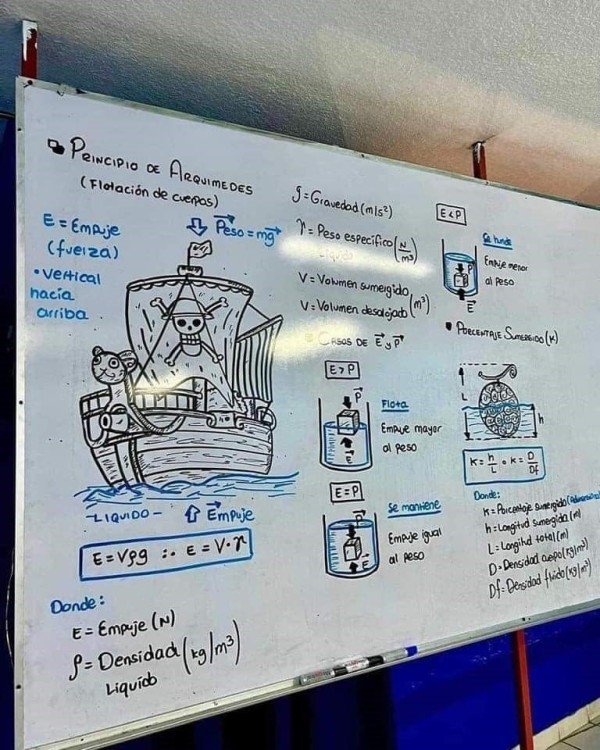 PRINCIPIO DE ARQUIMEDES
(Flotación de cuerpos)
E = Empuje
(fuerza)
• vertical
hacía
arriba
Peso = mg
-LIQUIDO-
Empuje
E = Vρg ∴ E = V·γ
Donde:
E = Empuje (N)
ρ = Densidad (kg/m³)
Liquido
g = Gravedad (m/s²)
γ = Peso especifico (N/m³)
V = Volumen sumergido
V = Volumen desalojado (m³)
CASOS DE E y P
E > P
P
E
Flota
Empuje mayor
al peso
E = P
P
E
Se mantiene
Empuje igual
al peso
E < P
P
E
Se hunde
Empuje menor
al peso
PORCENTAJE SUMERGIDO (K)
L
h
K = h/L = K = D/Df
Donde:
K = Porcentaje sumergido
h = Longitud sumergida (m)
L = Longitud total (m)
D = Densidad cuerpo (kg/m³)
Df = Densidad fluido (kg/m³)